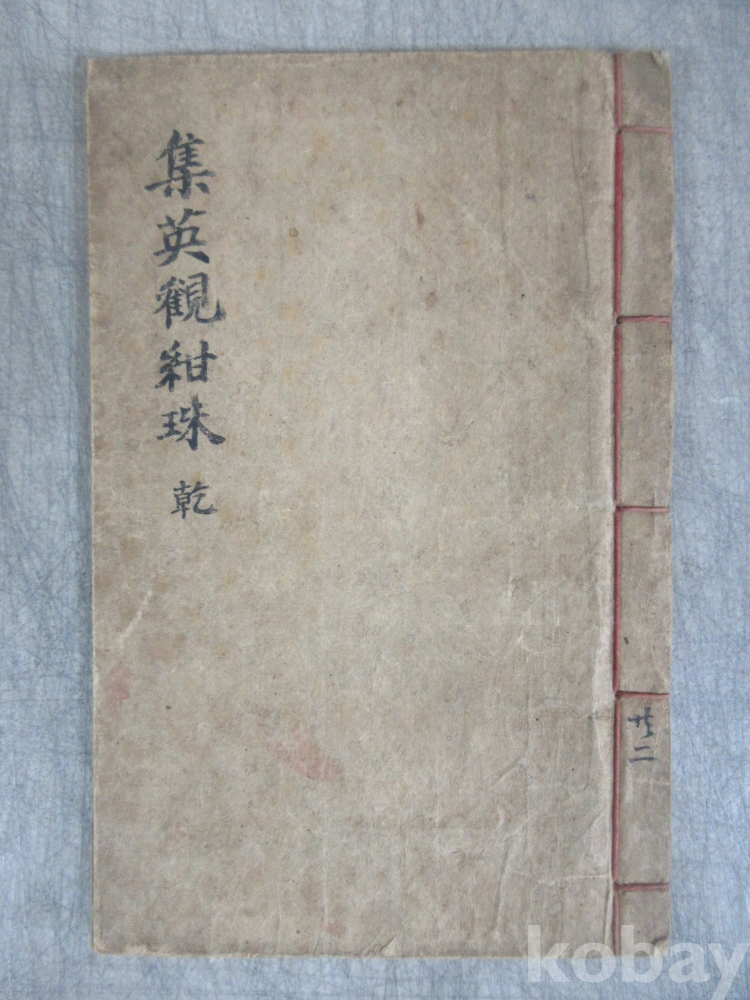 集英觀紺珠 乾
共二
kobay